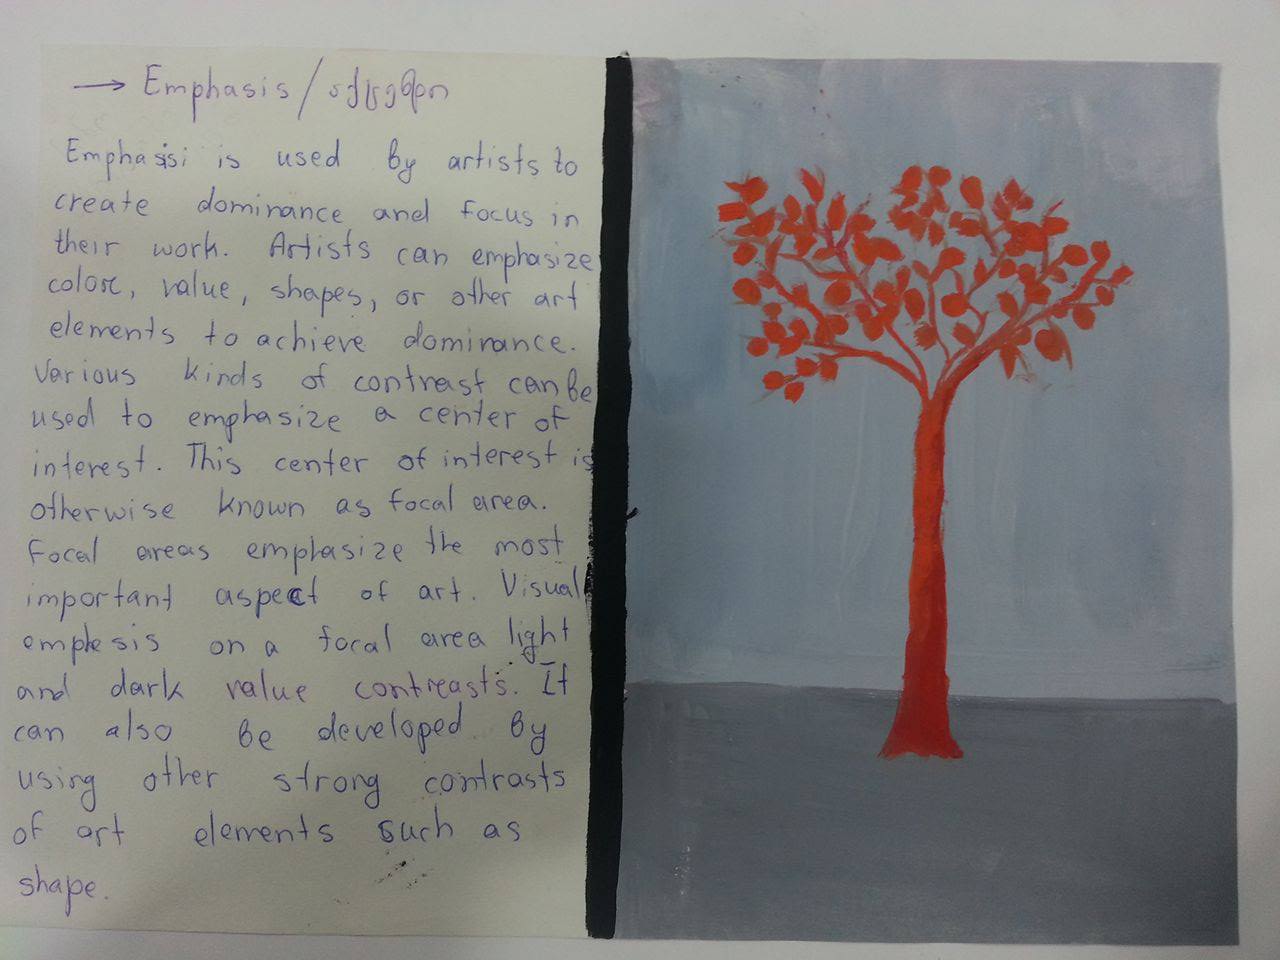 → Emphasis /
Emphassi is used by artists to
create dominance and focus in
their work. Artists can emphasize
colore, value, shapes, or other art
elements to achieve dominance.
Various kinds of contrast can be
used to emphasize a center of
interest. This center of interest is
otherwise known as focal area.
Focal areas emphasize the most
important aspect of art. Visual
emplesis on a focal area light
and dark value contreasts. It
can also be developed by
using other strong contrasts
of art elements such as
shape.